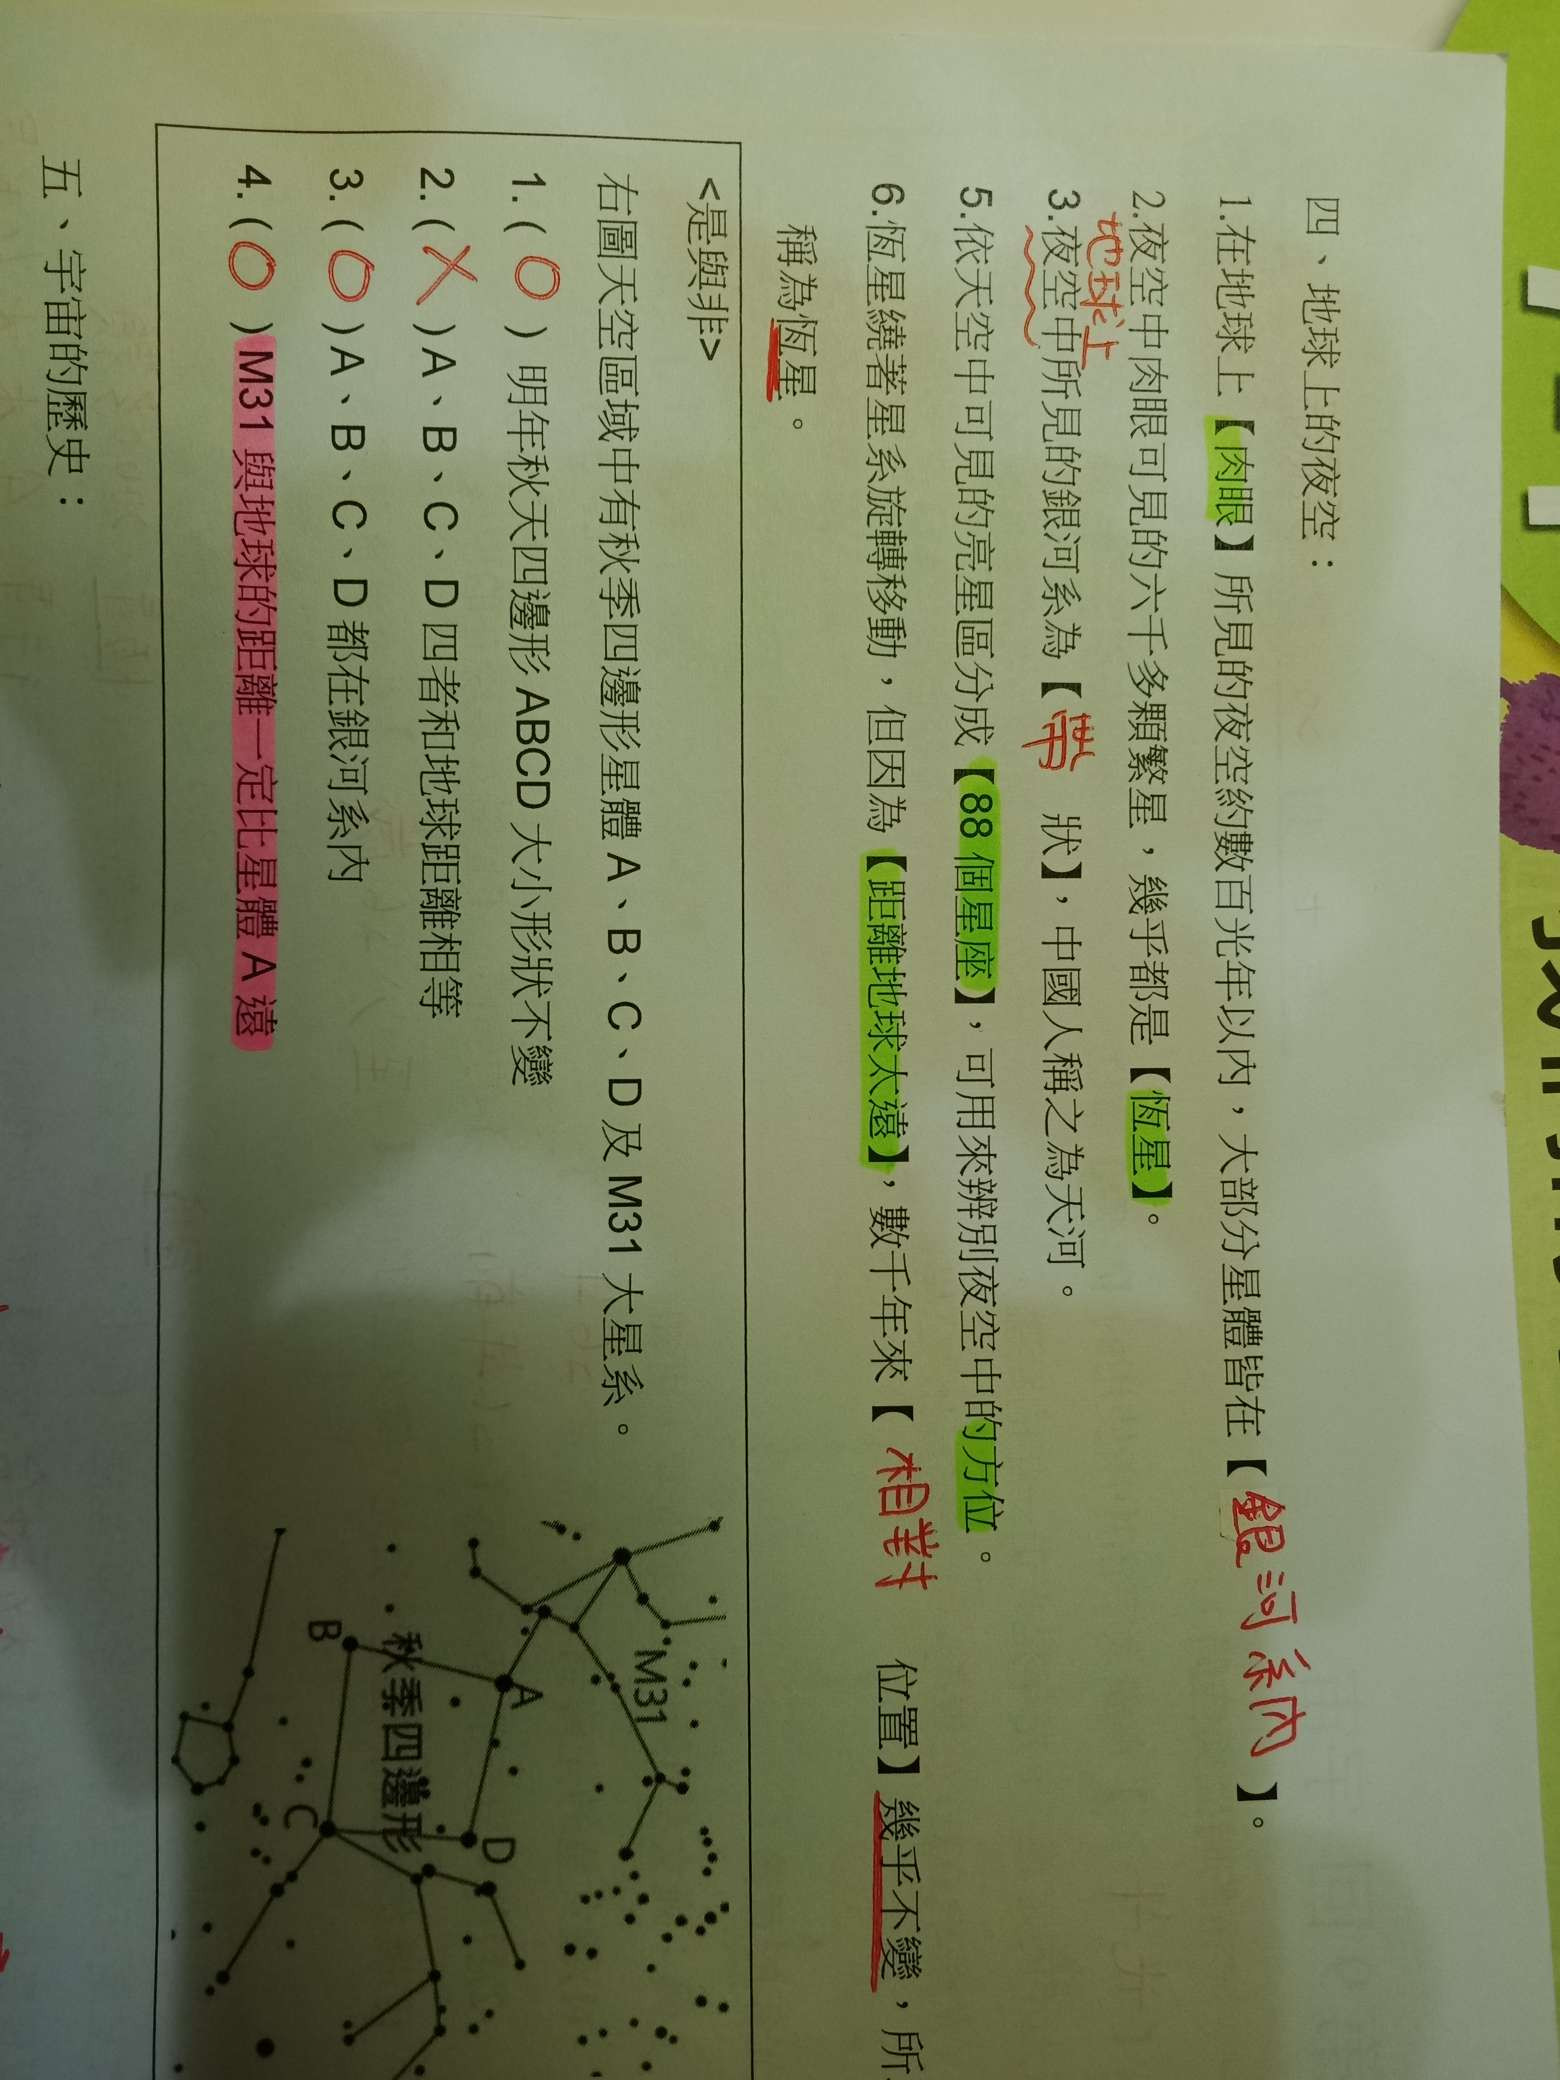 四、地球上的夜空：
1.在地球上【肉眼】所見的夜空約數百光年以內，大部分星體皆在【銀河系內】。
2.夜空中肉眼可見的六千多顆繁星，幾乎都是【恆星】。
地球上
3.夜空中所見的銀河系為【帶 狀】，中國人稱之為天河。
5.依天空中可見的亮星區分成【88 個星座】，可用來辨別夜空中的方位。
6.恆星繞著星系旋轉移動，但因為【距離地球太遠】，數千年來【相對 位置】幾乎不變，所
稱為恆星。
<是與非>
右圖天空區域中有秋季四邊形星體 A、B、C、D 及 M31 大星系。
1.( O ) 明年秋天四邊形 ABCD 大小形狀不變
2.( X )A、B、C、D 四者和地球距離相等
3.( O )A、B、C、D 都在銀河系內
4.( O )M31 與地球的距離一定比星體 A 遠
M31
A
D
秋季四邊形
B
C
五、宇宙的歷史：